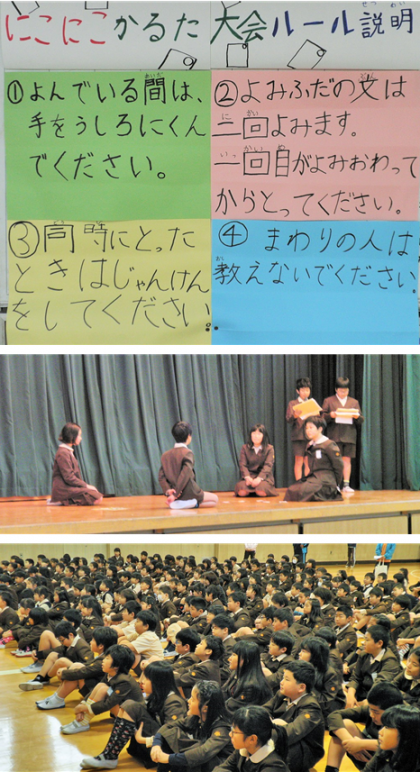 にこにこかるた 大会ルール説明
せつめい
①よんでいる間は、
あいだ
手をうしろにくん
でください。
②よみふだの文は
ぶん
二回よみます。
にかい
一回目がよみおわって
いっかいめ
からとってください。
③同時にとった
どうじ
ときはじゃんけん
をしてください。
④まわりの人は
教えないでください。
おし